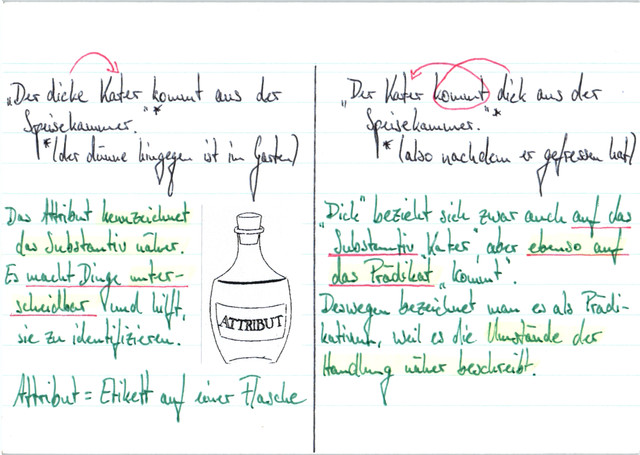 „Der dicke Kater kommt aus der
Speisekammer."*
*(der dünne hingegen ist im Garten)
Das Attribut kennzeichnet
das Substantiv näher.
Es macht Dinge unter-
scheidbar und hilft,
sie zu identifizieren.
ATTRIBUT
Attribut = Etikett auf einer Flasche
„Der Kater kommt dick aus der
Speisekammer."*
*(also nachdem er gefressen hat)
„Dick" bezieht sich zwar auch auf das
Substantiv „Kater", aber ebenso auf
das Prädikat „kommt".
Deswegen bezeichnet man es als Prädi-
kativum, weil es die Umstände der
Handlung näher beschreibt.